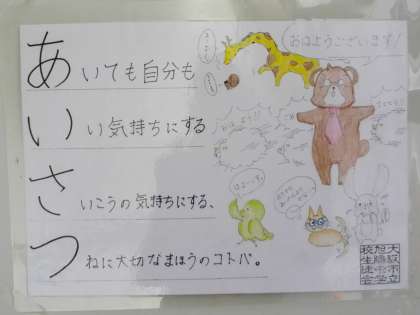 あいても自分も
いい気持ちにする
さいこうの気持ちにする、
つねに大切なまほうのコトバ。
おはようございます!
おはよう!!
はよーっす。
大阪市立
旭陽中学
校生徒会